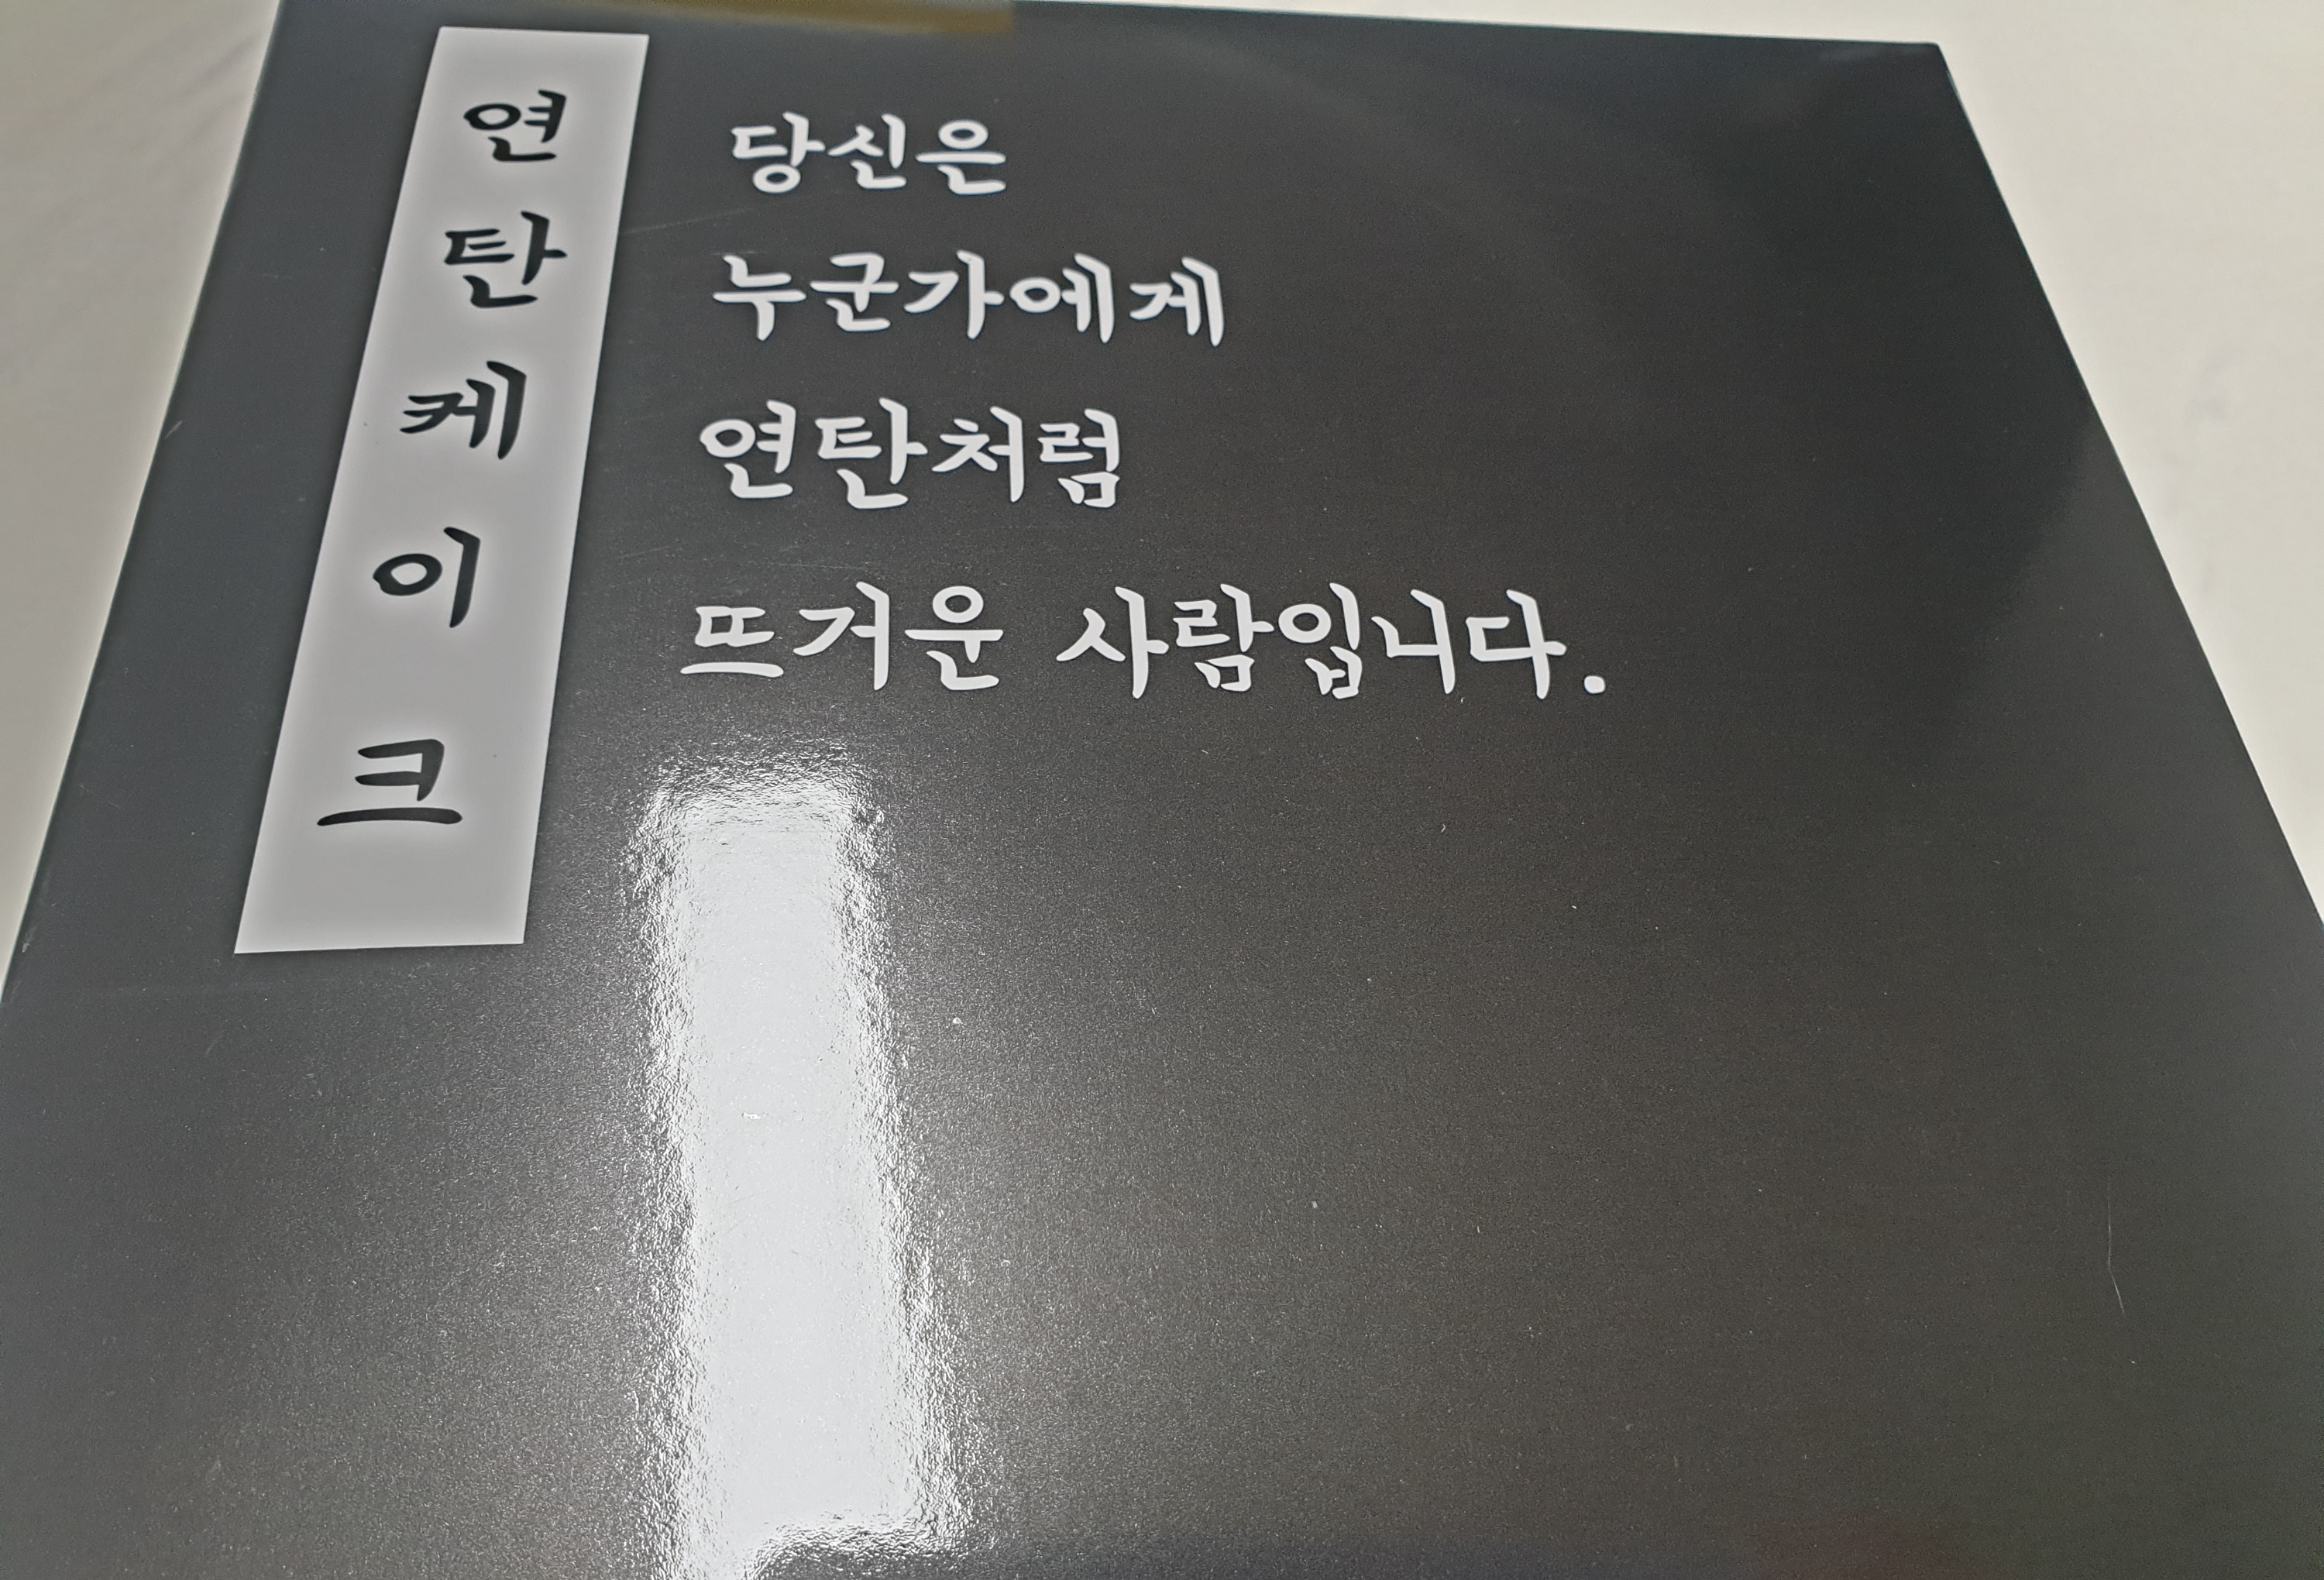 연탄케이크
당신은
누군가에게
연탄처럼
뜨거운 사람입니다.